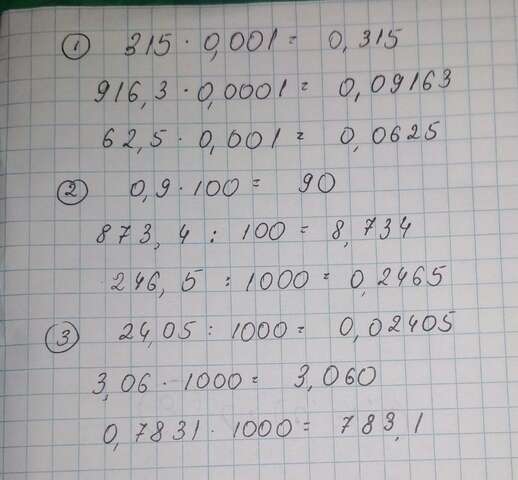 ① 315 · 0,001 = 0,315
916,3 · 0,0001 = 0,09163
62,5 · 0,001 = 0,0625
② 0,9 · 100 = 90
873,4 : 100 = 8,734
246,5 : 1000 = 0,2465
③ 24,05 : 1000 = 0,02405
3,06 · 1000 = 3,060
0,7831 · 1000 = 783,1